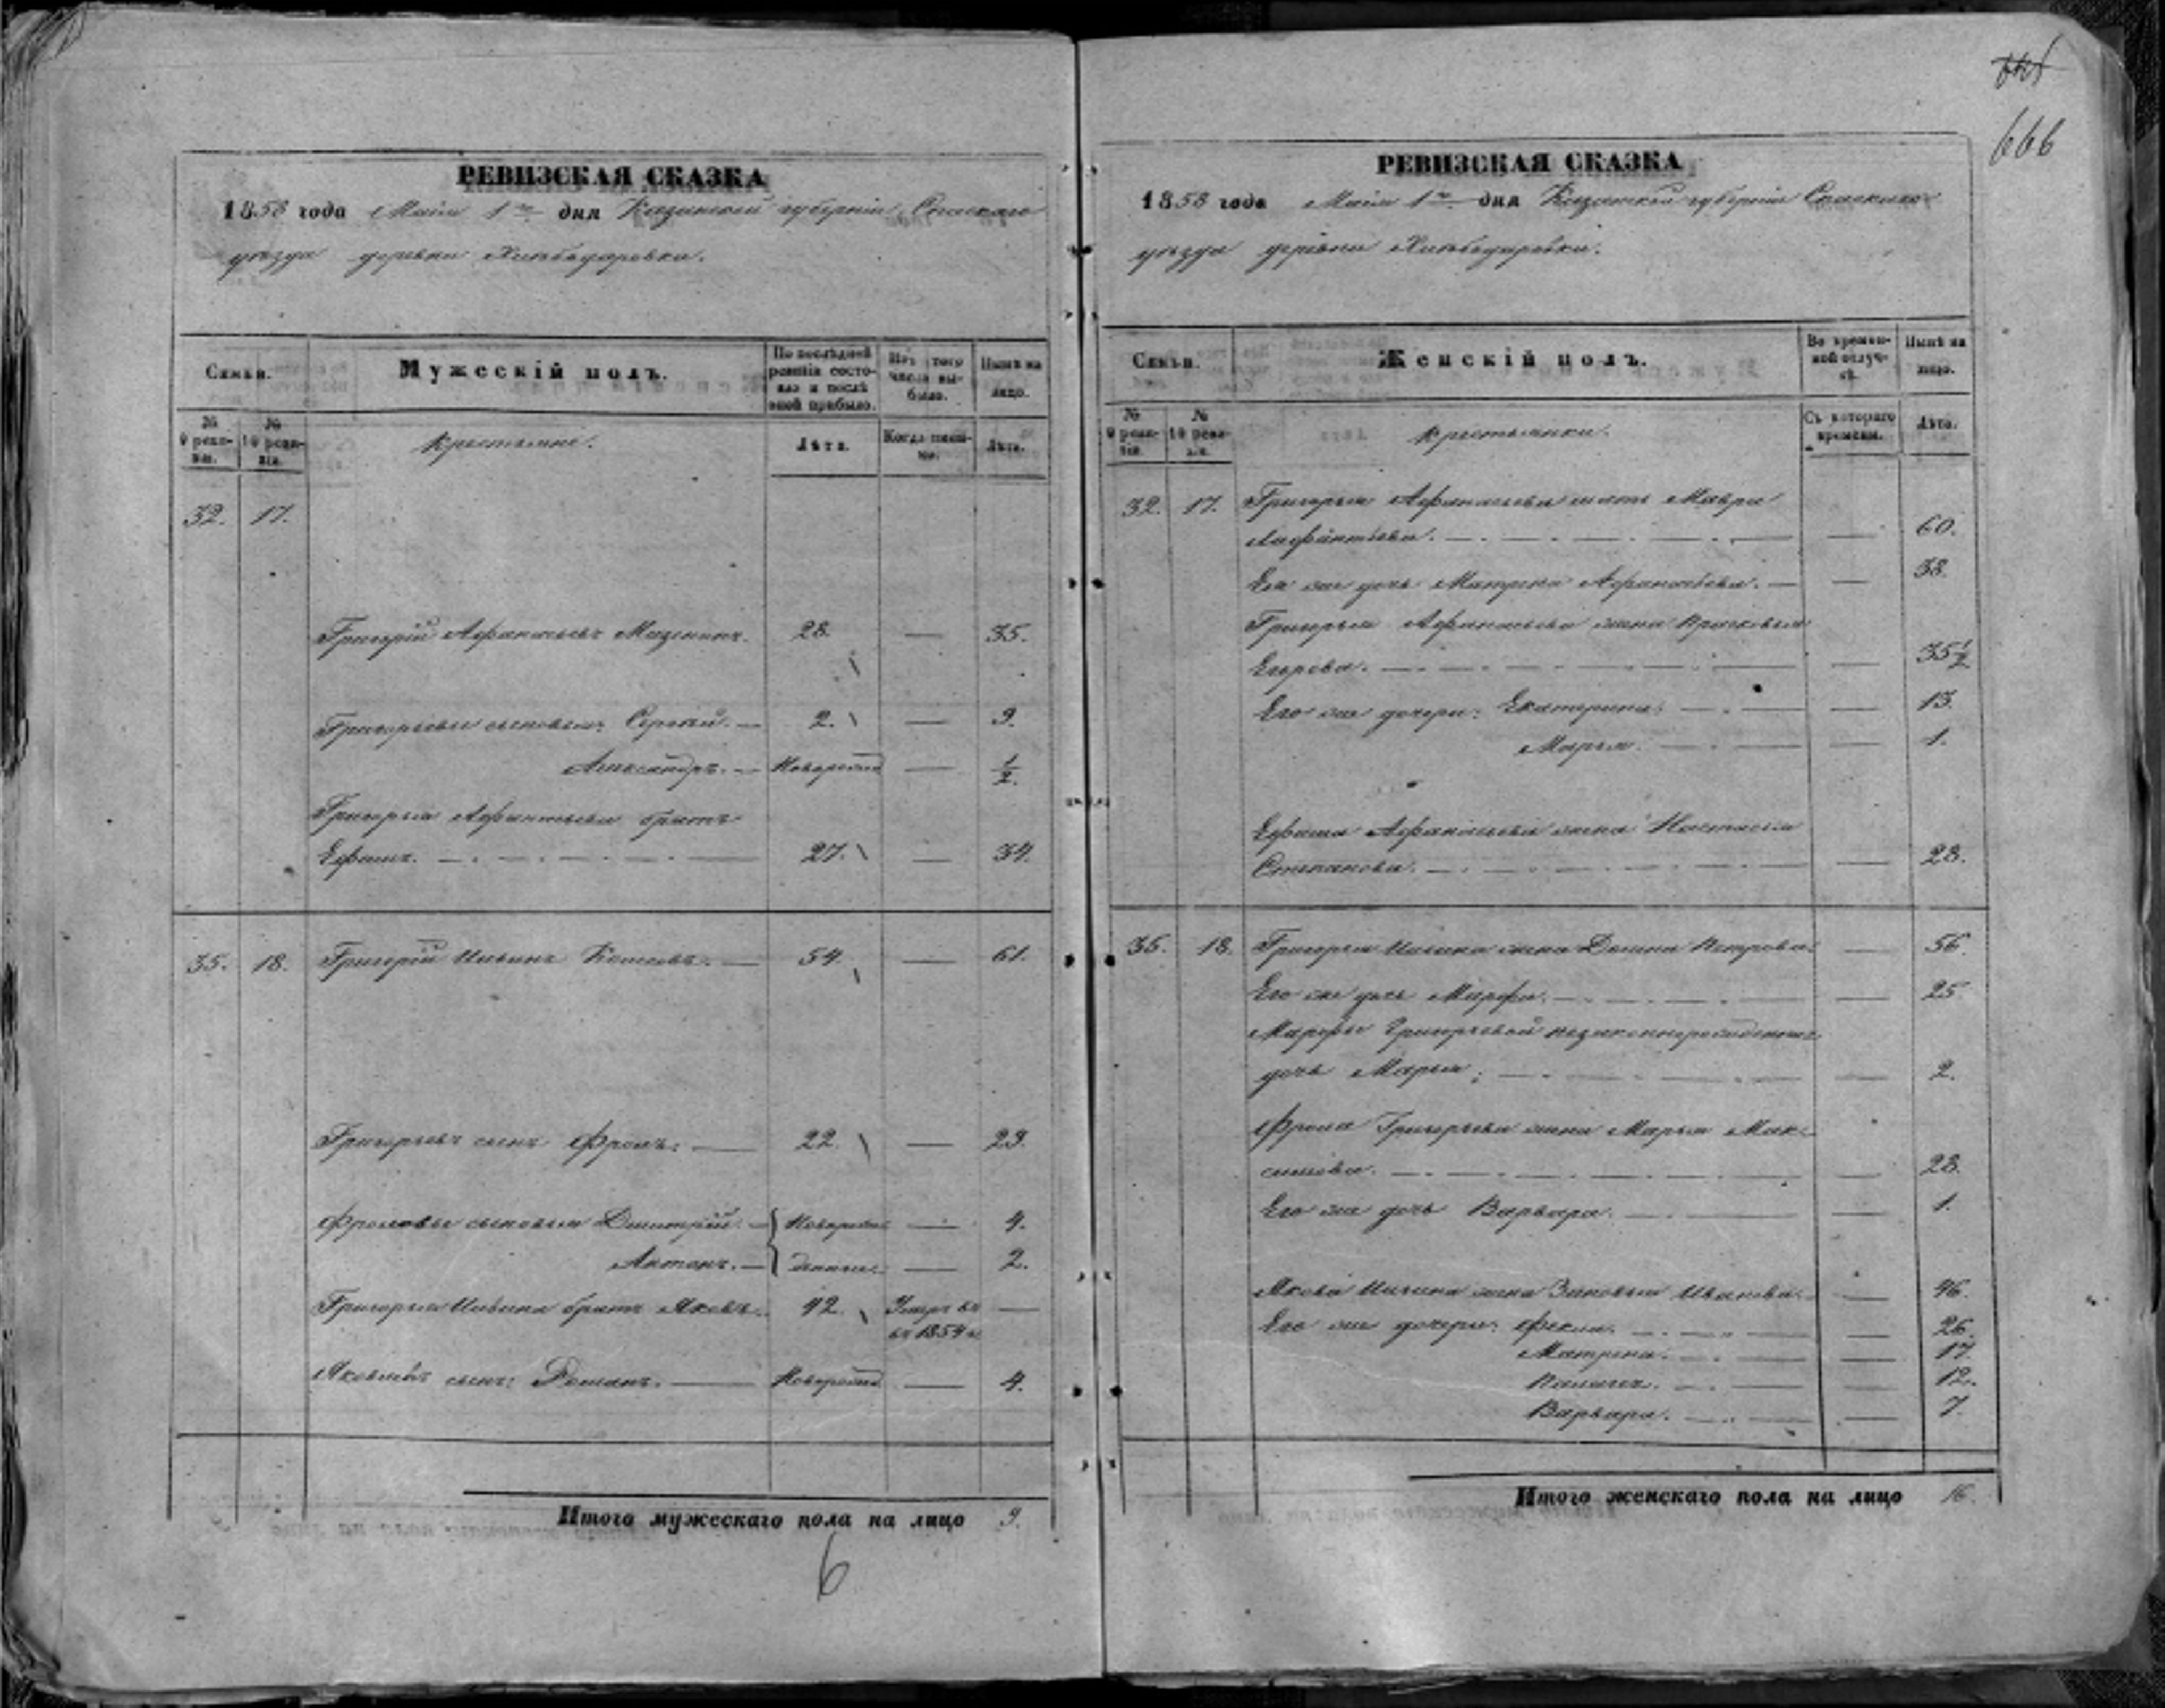 666
РЕВИЗСКАЯ СКАЗКА
1858 года Маія 1го дня Казанской губерніи Спаскаго
уѣзда деревни
Семьи.
Мужескій полъ.
По послѣдней ревизіи состояло и послѣ оной прибыло.
Изъ того числа выбыло.
Нынѣ на лицо.
№ 9 ревизіи.
№ 10 ревизіи.
Крестьяне.
Лѣта.
Когда именно.
Лѣта.
32. 17.
Григорій Афанасьевъ 28. — 35.
Григорьевы сыновья: Сергѣй. — 2. — 9.
Александръ. — Новорожд — 1/2.
Григорья Афанасьева братъ
Ефимъ. — 27. — 34.
35. 18. Григорій Ильинъ — 54. — 61.
Григорьевъ сынъ Фролъ: — 22. — 29.
Фроловы сыновья Дмитрій. — Новорож — 4.
Антонъ. — денные. — 2.
Григорья Ильина братъ Яковъ. 42. Умеръ въ —
въ 1854 г.
Яковлевъ сынъ: Романъ. — Новорожд — 4.
Итого мужескаго пола на лицо 9.
6
РЕВИЗСКАЯ СКАЗКА
1858 года Маія 1го дня Казанской губерніи Спаскаго
уѣзда деревни
Семьи.
Женскій полъ.
Во временной отлучкѣ.
Нынѣ на лицо.
№ 9 ревизіи.
№ 10 ревизіи.
Крестьянки.
Съ котораго времени.
Лѣта.
32. 17. Григорья Афанасьева мать Мавра
— 60.
Ея же дочь Матрена Афанасьева. — 38.
Григорья Афанасьева жена Прасковья
Егорова. — 35 1/2
Его же дочери: Екатерина. — 13.
Марья. — 1.
Ефима Афанасьева жена Настасья
Степанова. — 28.
35. 18. Григорья Ильина жена Домна Петрова. — 56.
Его же дочь Марфа. — 25.
Марфы Григорьевой незаконнорожденная
дочь Марья; — 2.
Фрола Григорьева жена Марья Мак-
симова. — 28.
Его же дочь Варвара. — 1.
Якова Ильина жена Зиновья Иванова. — 46.
Его же дочери: Фекла. — 26.
Матрена. — 17.
— 12.
Варвара. — 7.
Итого женскаго пола на лицо 16.